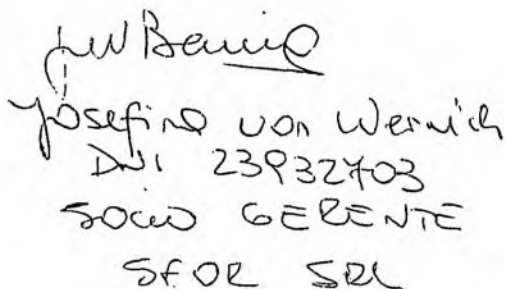 Josefina von Wernich
DNI 23932703
SOCIO GERENTE
SFOR SRL